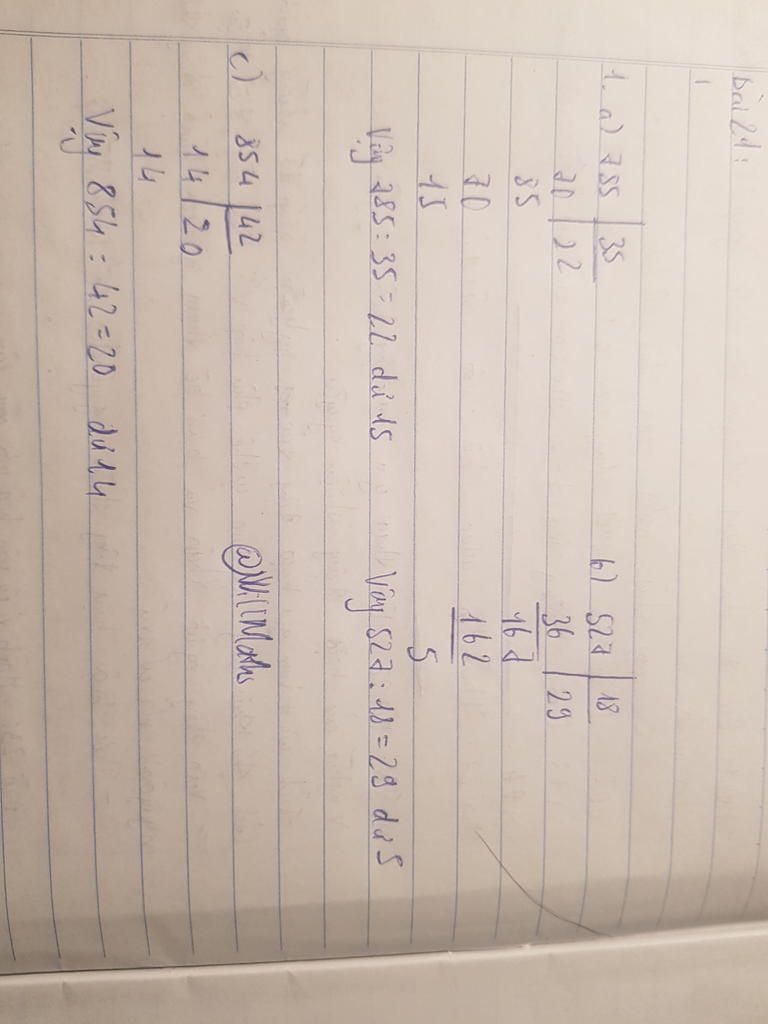 bài 21:
1. a) 785 | 35
70 | 22
85
70
15
Vậy 785 : 35 = 22 dư 15
b) 527 | 18
36 | 29
167
162
5
Vậy 527 : 18 = 29 dư 5
c) 854 | 42
14 | 20
14
Vậy 854 : 42 = 20 dư 14
@WillMaths